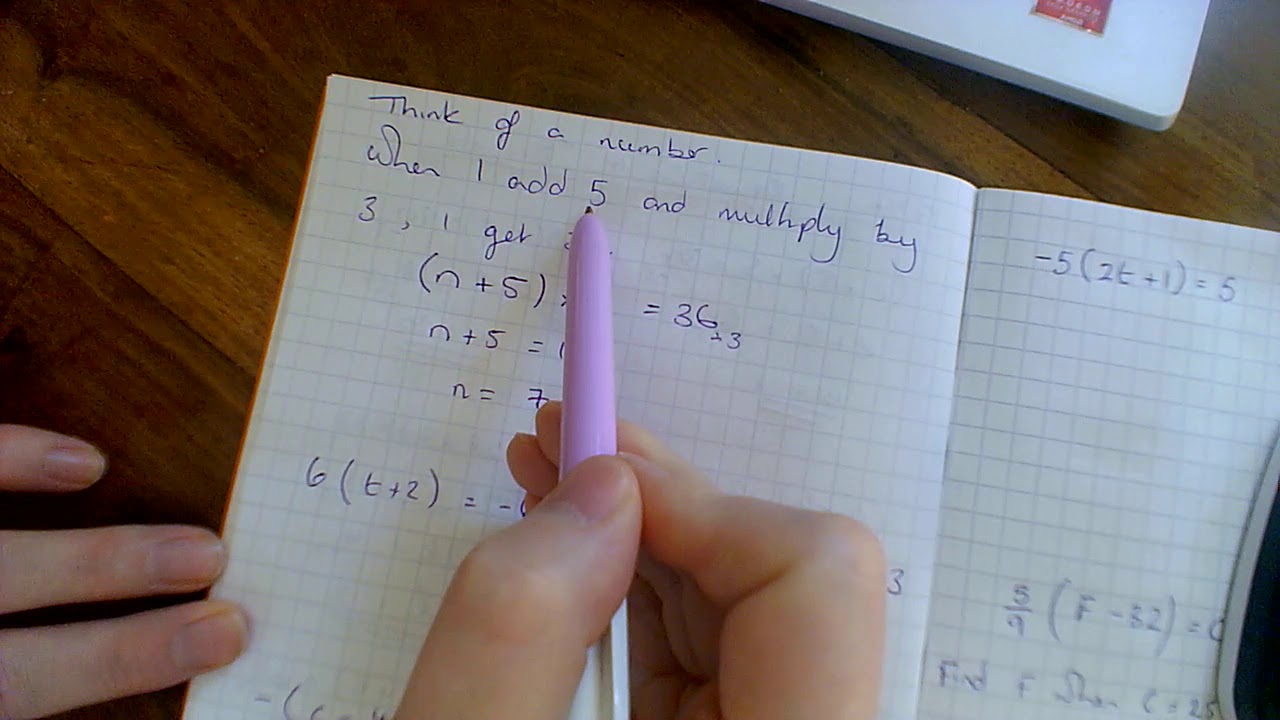 Think of a number.
When I add 5 and multiply by
3, I get
(n + 5) = 36
÷3
n + 5 =
n = 7
6(t+2) = -
3
-5(2t+1) = 5
5/9 (F - 32) =
Find F when C = 25